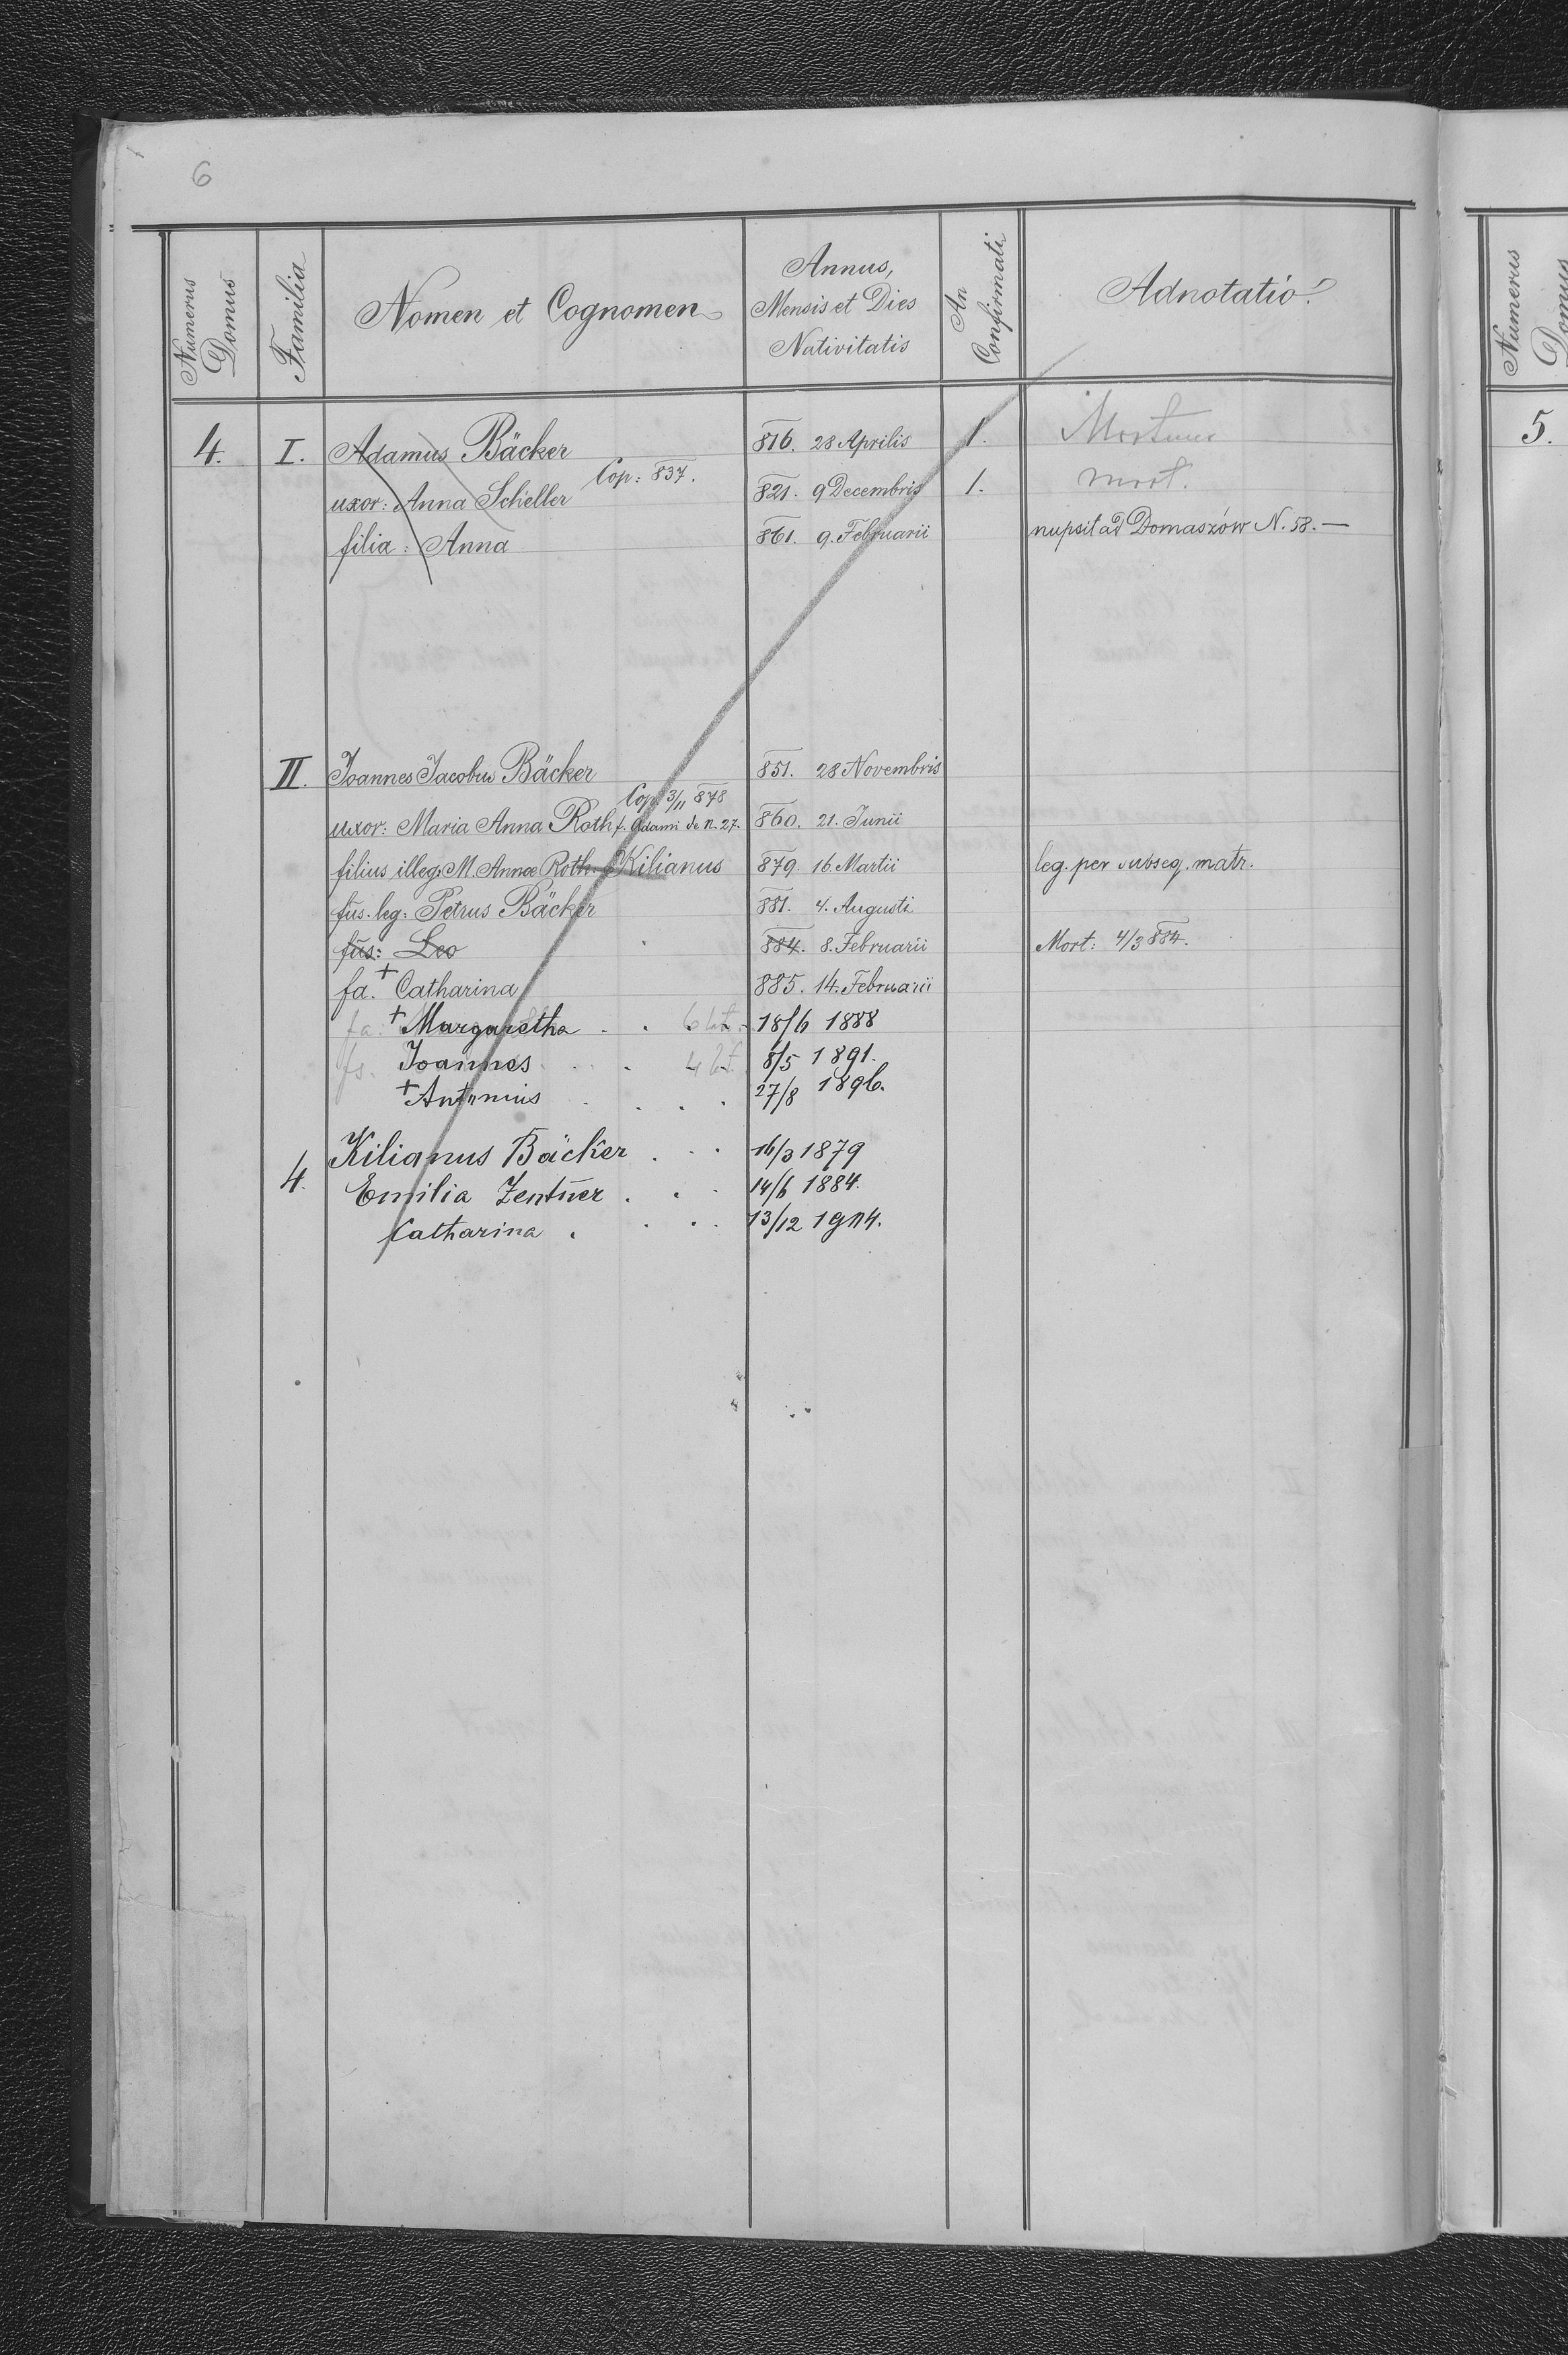 6
Numerus Domus Familia Nomen et Cognomen Annus, Mensis et Dies Nativitatis An Confirmati Adnotatio.
4. I. Adamus Bäcker 816. 28 Aprilis 1. Mortuus
Cop: 837.
uxor: Anna Scheller 821. 9 Decembris 1. mort.
filia: Anna 861. 9. Februarii nupsit ad Domaszów N. 58. —
II. Joannes Jacobus Bäcker 851. 28 Novembris
Cop. 3/11 878
uxor: Maria Anna Roth f. Adami de N. 27. 860. 21. Junii
filius illeg. M. Annae Roth Kilianus 879. 16 Martii leg. per subseq. matr.
fius. leg: Petrus Bäcker 881. 4. Augusti
fius: Leo 884. 8. Februarii Mort: 4/3 884.
fa. + Catharina 885. 14. Februarii
fa. + Margaretha . . 6 18/6 1888
fs. Joannes . . . 4 8/5 1891.
+ Antonius . . . . 27/8 1896.
Kilianus Bäcker . . . 16/3 1879
4. Emilia Zentner . . . 14/6 1884.
Catharina . . . . 13/12 1904.
Numerus Domus
5.